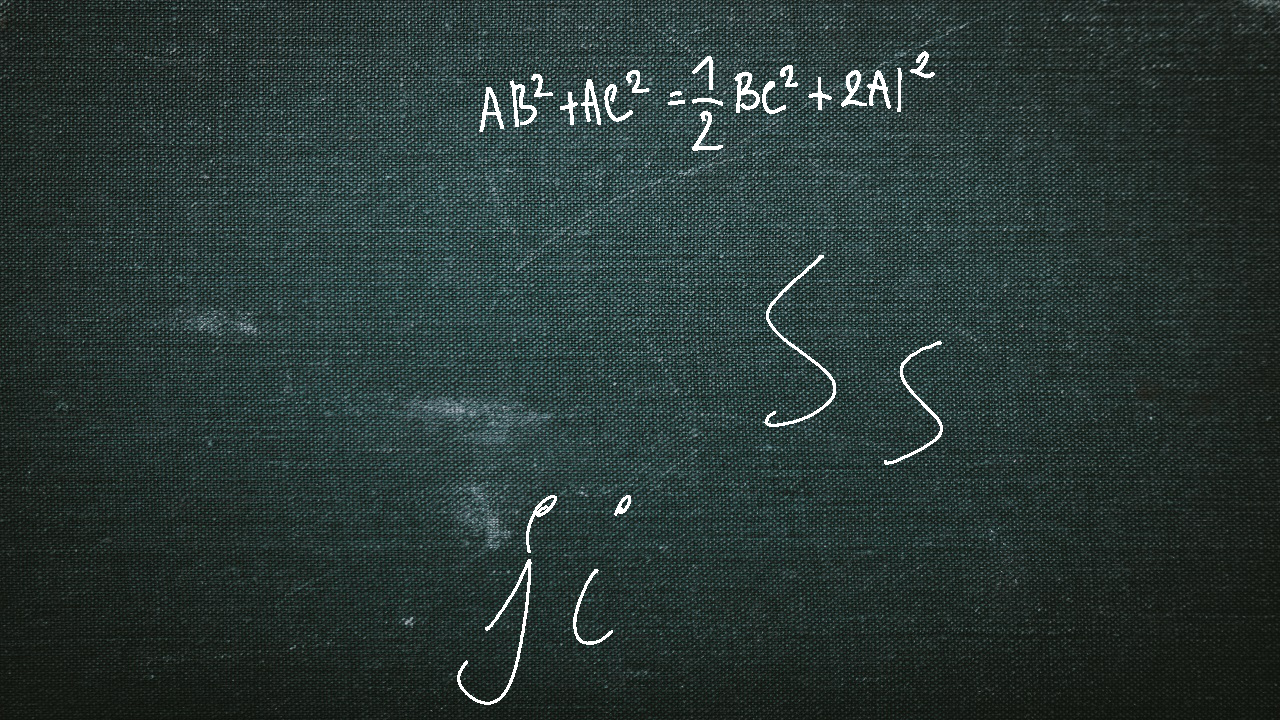 AB² + AC² = 1/2 BC² + 2AI²
S s
j i